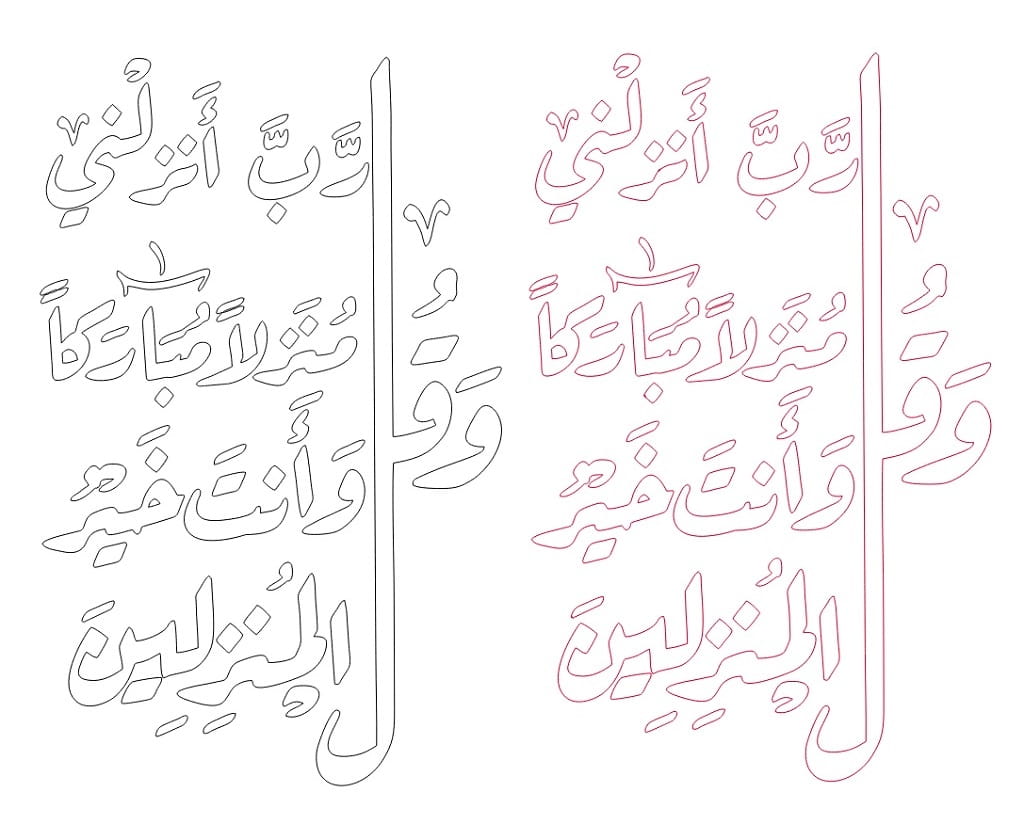 وَقُل
رَّبَّ أَنزلْني
مُنَزلاً مُبَارَكاً
وَأَنتَ خَيرٌ
المُنزِلِينَ
وَقُل
رَّبَّ أَنزلْني
مُنَزلاً مُبَارَكاً
وَأَنتَ خَيرٌ
المُنزِلِينَ